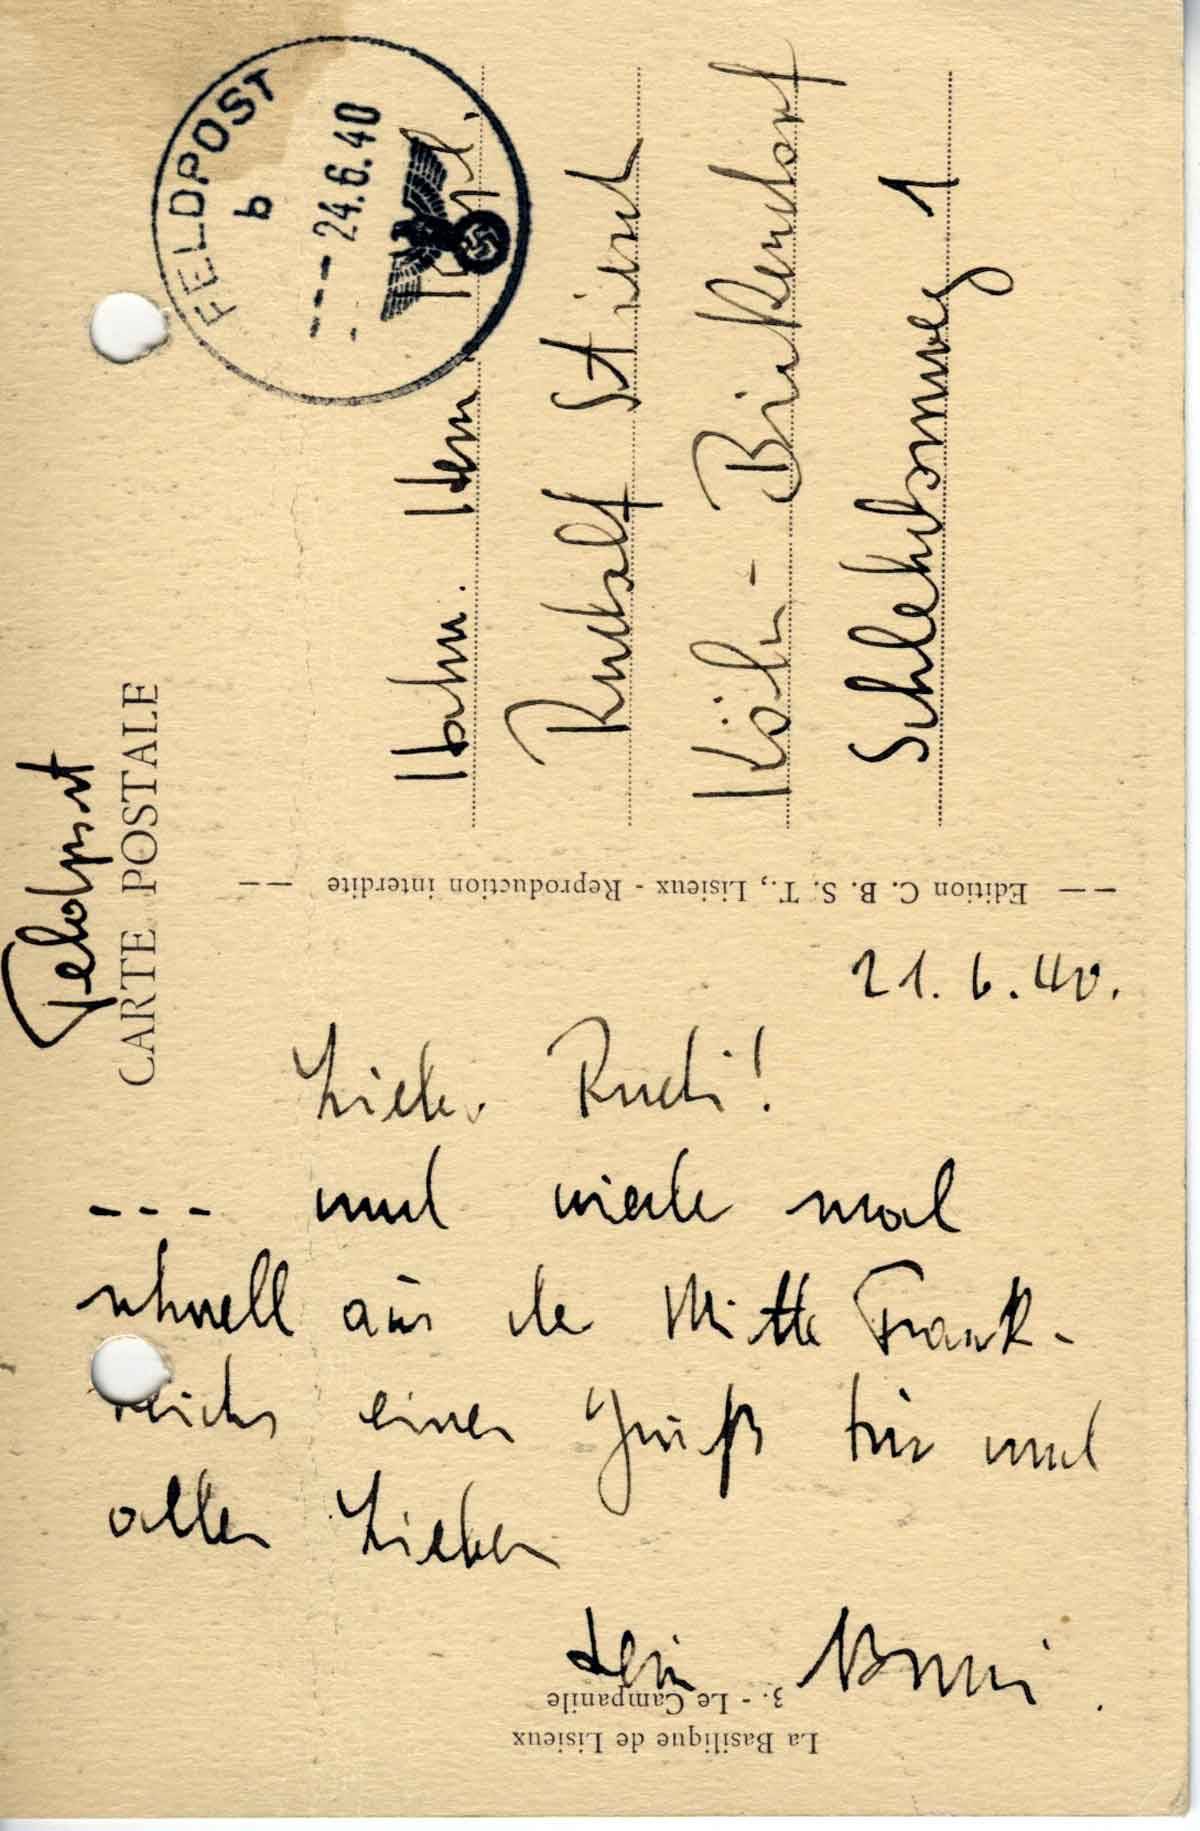 Feldpost
CARTE POSTALE
FELDPOST
b
--- 24.6.40
Herrn
Rudolf
Köln-Bickendorf
Schlehdornweg 1
Edition C. B. S. T., Lisieux - Reproduction interdite
21.6.40.
Lieber Rudi!
--- und wieder mal
schnell aus der Mitte Frank-
reichs einen Gruß Dir und
allen Lieben
Dein
La Basilique de Lisieux
3. - Le Campanile